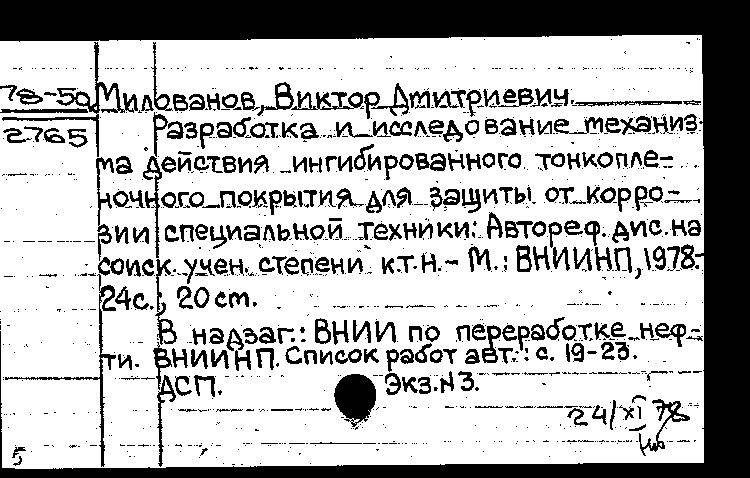 78-5а Милованов, Виктор Дмитриевич.
2765 Разработка и исследование механиз-
ма действия ингибированного тонкопле-
ночного покрытия для защиты от корро-
зии специальной техники: Автореф. дис. на
соиск. учен. степени к.т.н. - М.: ВНИИНП, 1978.-
24с.; 20 cm.
В надзаг.: ВНИИ по переработке неф-
ти. ВНИИНП. Список работ авт.: с. 19-23.
ДСП. Экз.N3.
24/XI 78
5